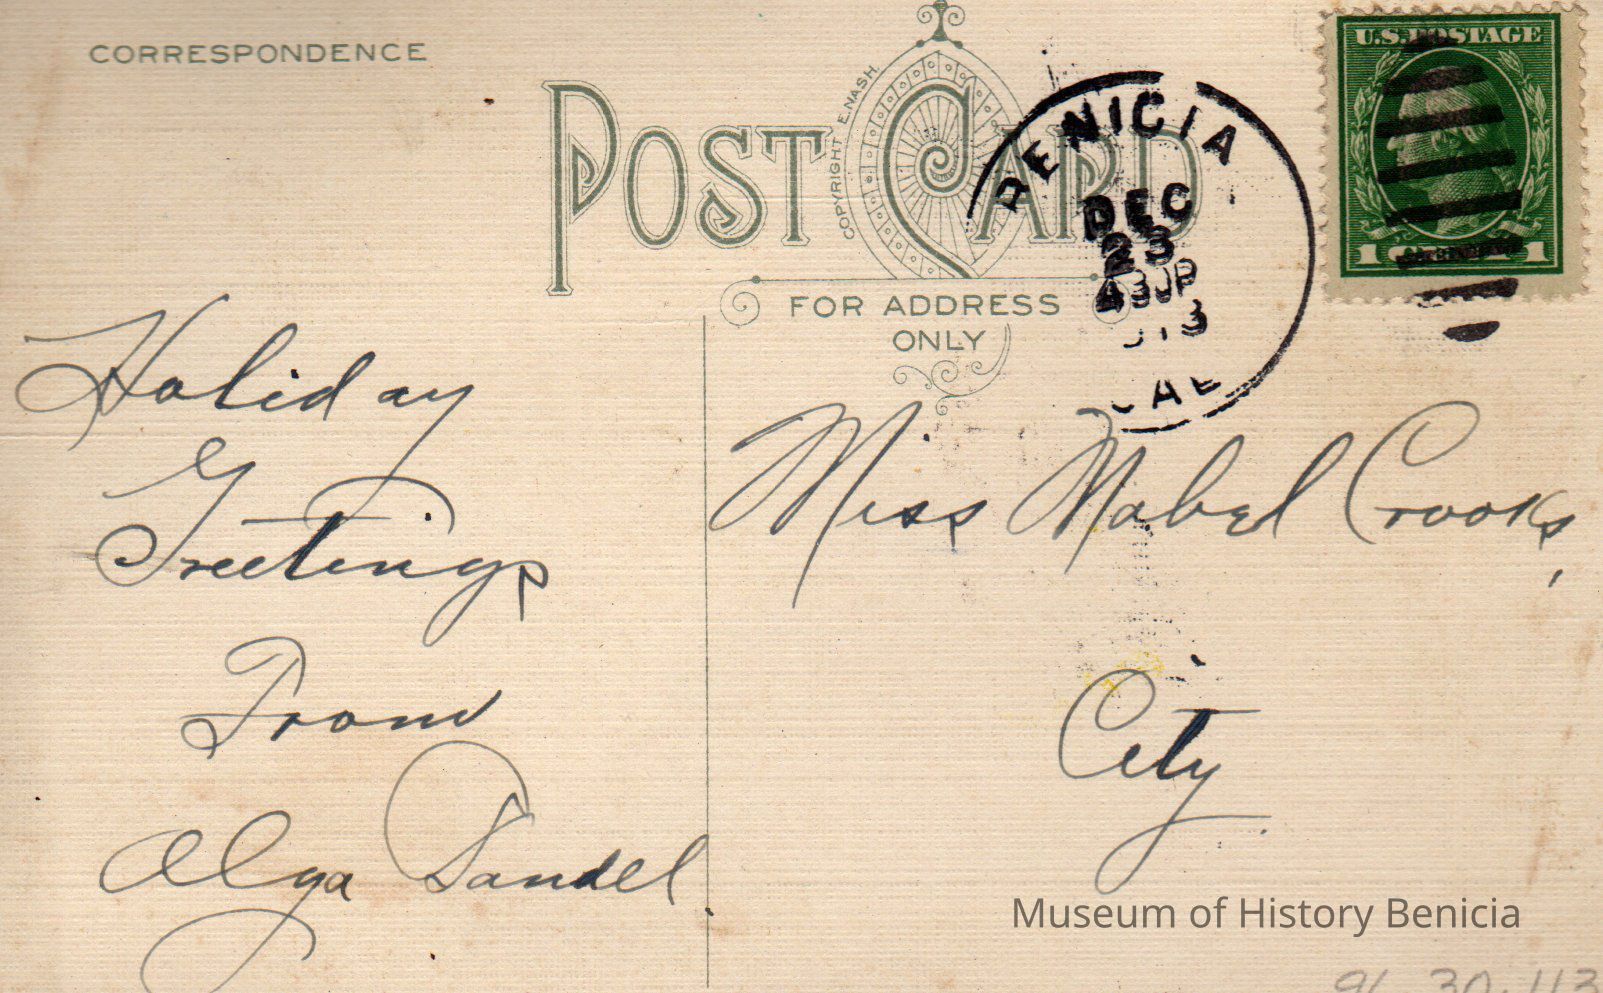 CORRESPONDENCE
POST CARD
COPYRIGHT E.NASH.
FOR ADDRESS
ONLY
BENICIA
DEC
23
430P
CAL
U.S. POSTAGE
1 1
Holiday
Greetings
From
Olga Sandel
Miss Mabel Crooks,
City
Museum of History Benicia
91.30.113